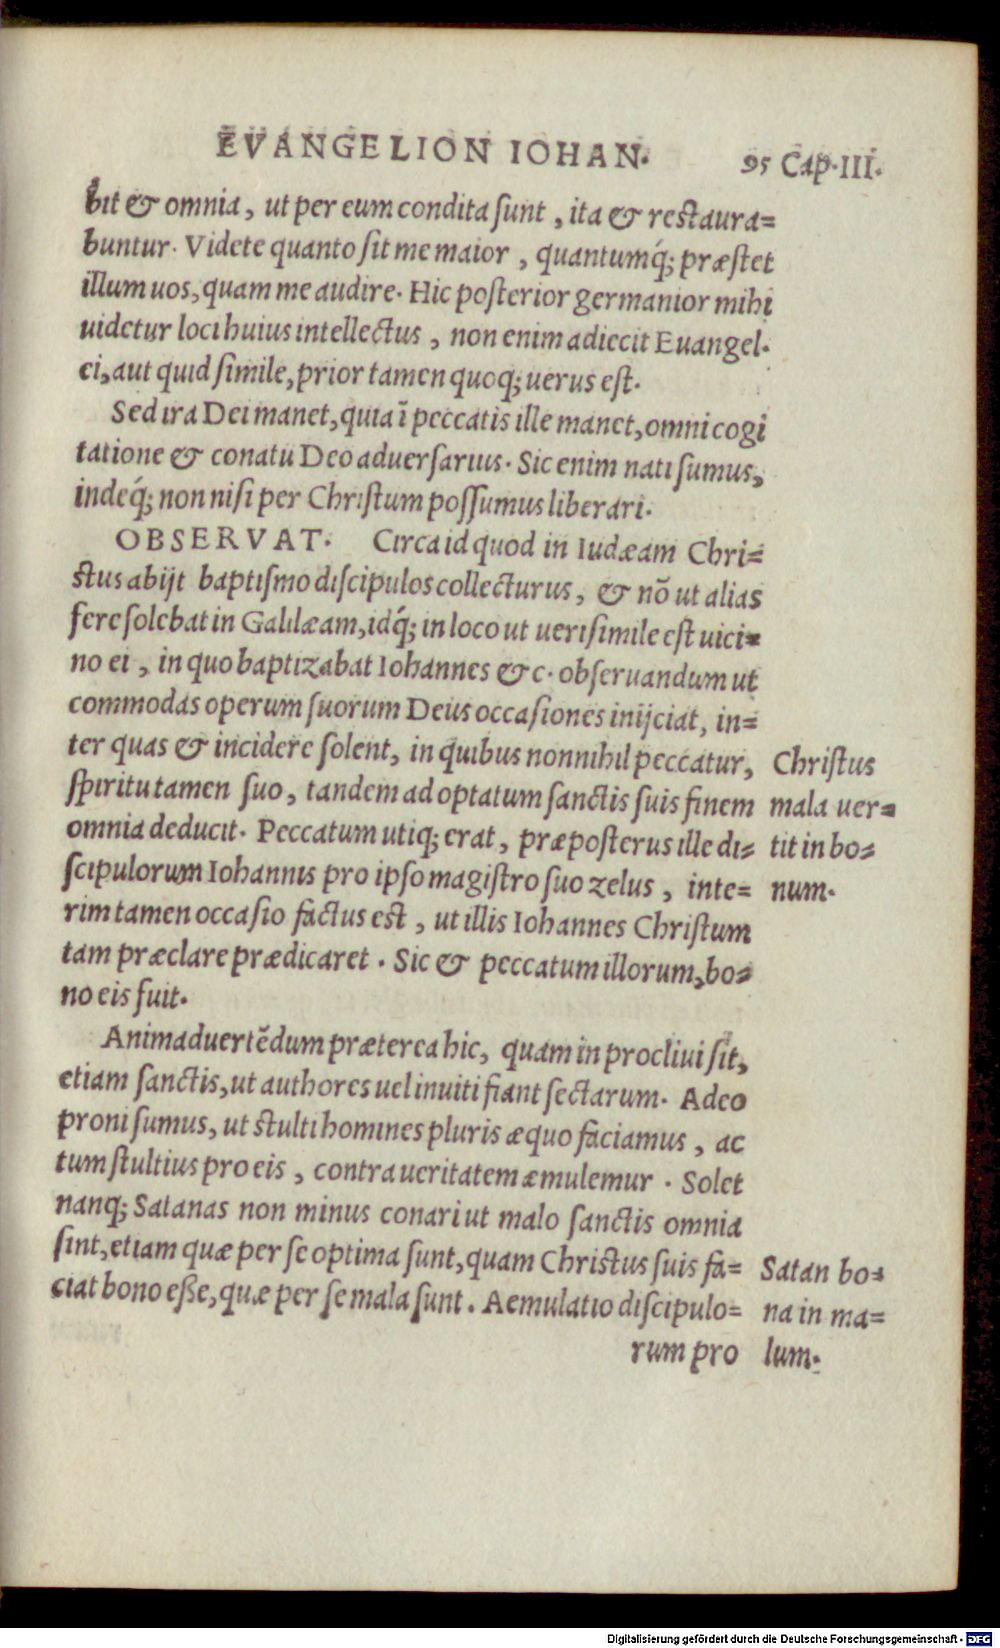 EVANGELION IOHAN.
95 Cap.III.
bit & omnia, ut per eum condita sunt, ita & restaura=
buntur. Videte quanto sit me maior, quantumq́; præstet
illum uos, quam me audire. Hic posterior germanior mihi
uidetur loci huius intellectus, non enim adiecit Euangel.
ei, aut quid simile, prior tamen quoq; uerus est.
Sed ira Dei manet, quia ī peccatis ille manet, omni cogi
tatione & conatu Deo aduersarius. Sic enim nati sumus,
indeq́; non nisi per Christum possumus liberari.
OBSERVAT. Circa id quod in Iudæam Chri=
stus abijt baptismo discipulos collecturus, & nō ut alias
fere solebat in Galilæam, idq́; in loco ut uerisimile est uici=
no ei, in quo baptizabat Iohannes &c. obseruandum ut
commodas operum suorum Deus occasiones inijciat, in=
ter quas & incidere solent, in quibus nonnihil peccatur,
spiritu tamen suo, tandem ad optatum sanctis suis finem
omnia deducit. Peccatum utiq; erat, præposterus ille di=
scipulorum Iohannis pro ipso magistro suo zelus, inte=
rim tamen occasio factus est, ut illis Iohannes Christum
tam præclare prædicaret. Sic & peccatum illorum, bo=
no eis fuit.
Christus
mala uer=
tit in bo=
num.
Animaduertēdum præterea hic, quam in procliui sit,
etiam sanctis, ut authores uel inuiti fiant sectarum. Adeo
proni sumus, ut stulti homines pluris æquo faciamus, ac
tum stultius pro eis, contra ueritatem æmulemur. Solet
nanq; Satanas non minus conari ut malo sanctis omnia
sint, etiam quæ per se optima sunt, quam Christus suis fa=
ciat bono eße, quæ per se mala sunt. Aemulatio discipulo=
rum pro
Satan bo=
na in ma=
lum.
Digitalisierung gefördert durch die Deutsche Forschungsgemeinschaft - DFG